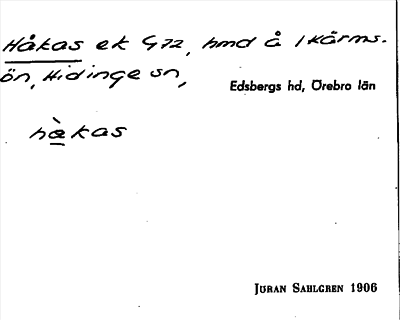 Håkas ek G 72, hmd å 1 Kärms-
ön, Hidinge sn,
Edsbergs hd, Örebro län
hàkas
Jöran Sahlgren 1906